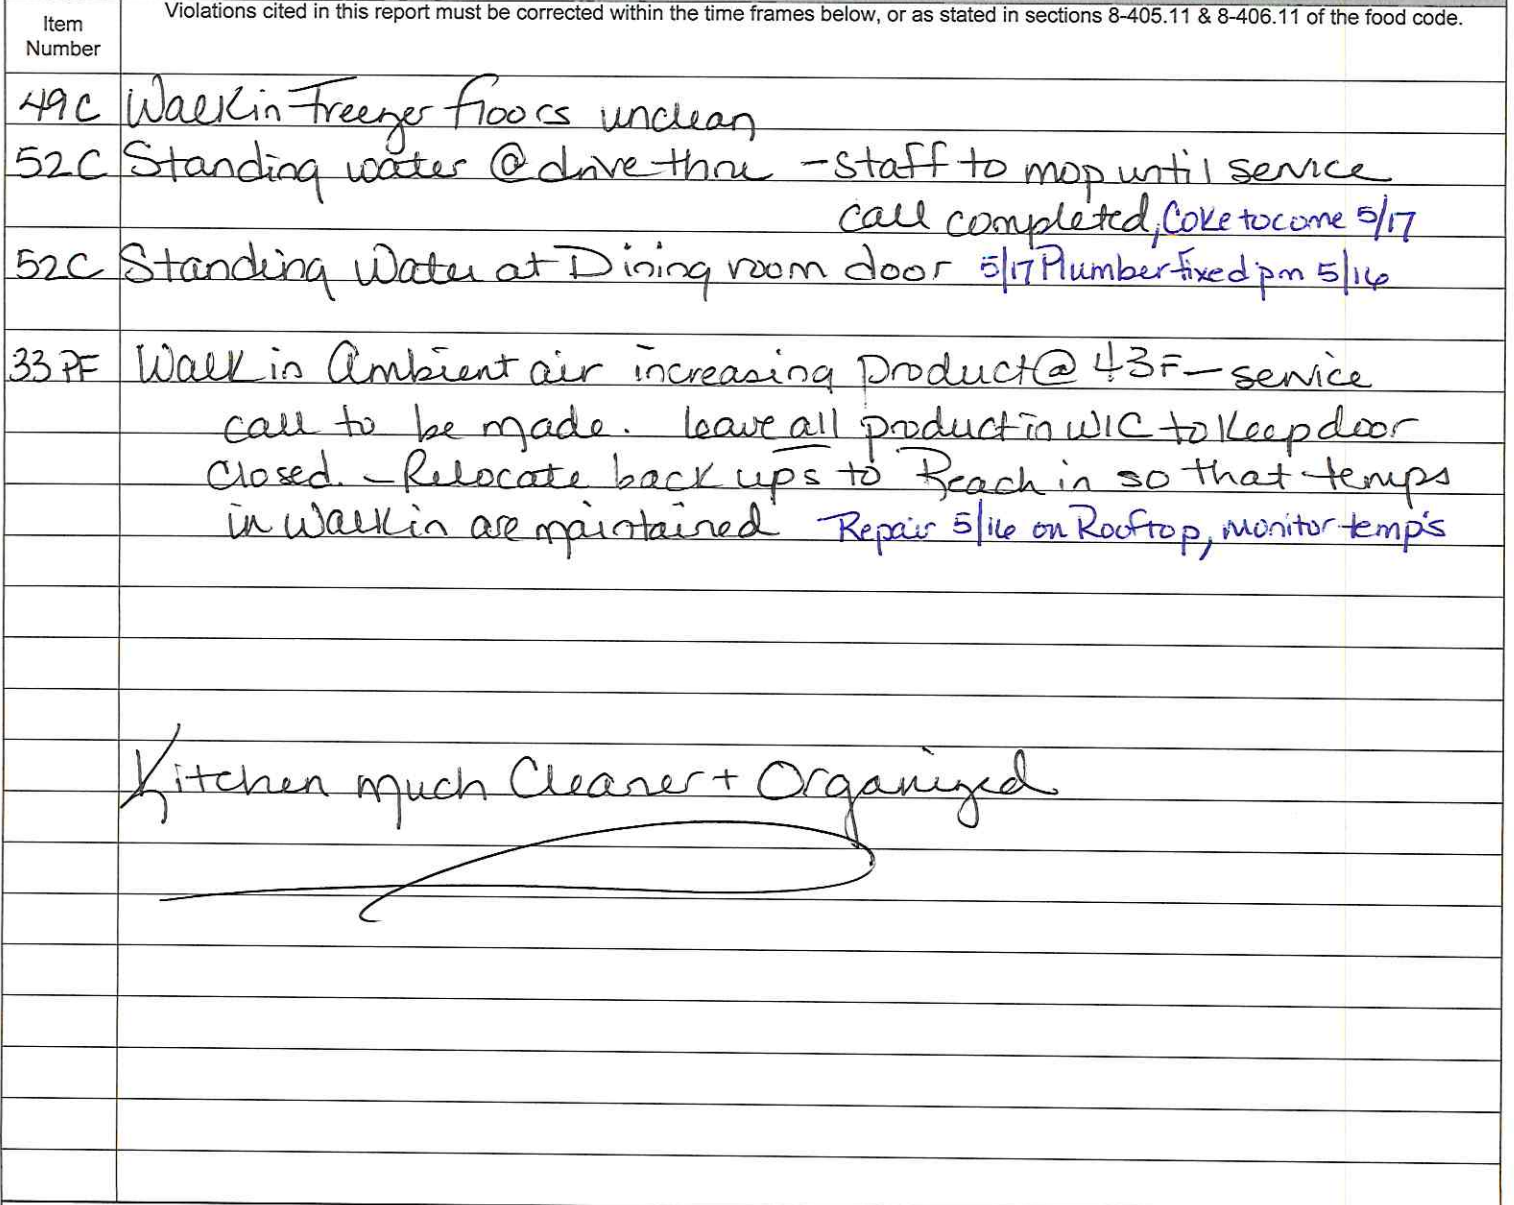 Item Number
Violations cited in this report must be corrected within the time frames below, or as stated in sections 8-405.11 & 8-406.11 of the food code.
49C Walkin Freezer floors unclean
52C Standing water @ drive thru - Staff to mop until service
call completed, Coke to come 5/17
52C Standing Water at Dining room door 5/17 Plumber fixed pm 5/16
33 PF Walk in Ambient air increasing product @ 43F - service
call to be made. leave all product in WIC to Keep door
Closed. - Relocate back ups to Reach in so that temps
in Walkin are maintained Repair 5/16 on Rooftop, monitor temp's
Kitchen much Cleaner + Organized